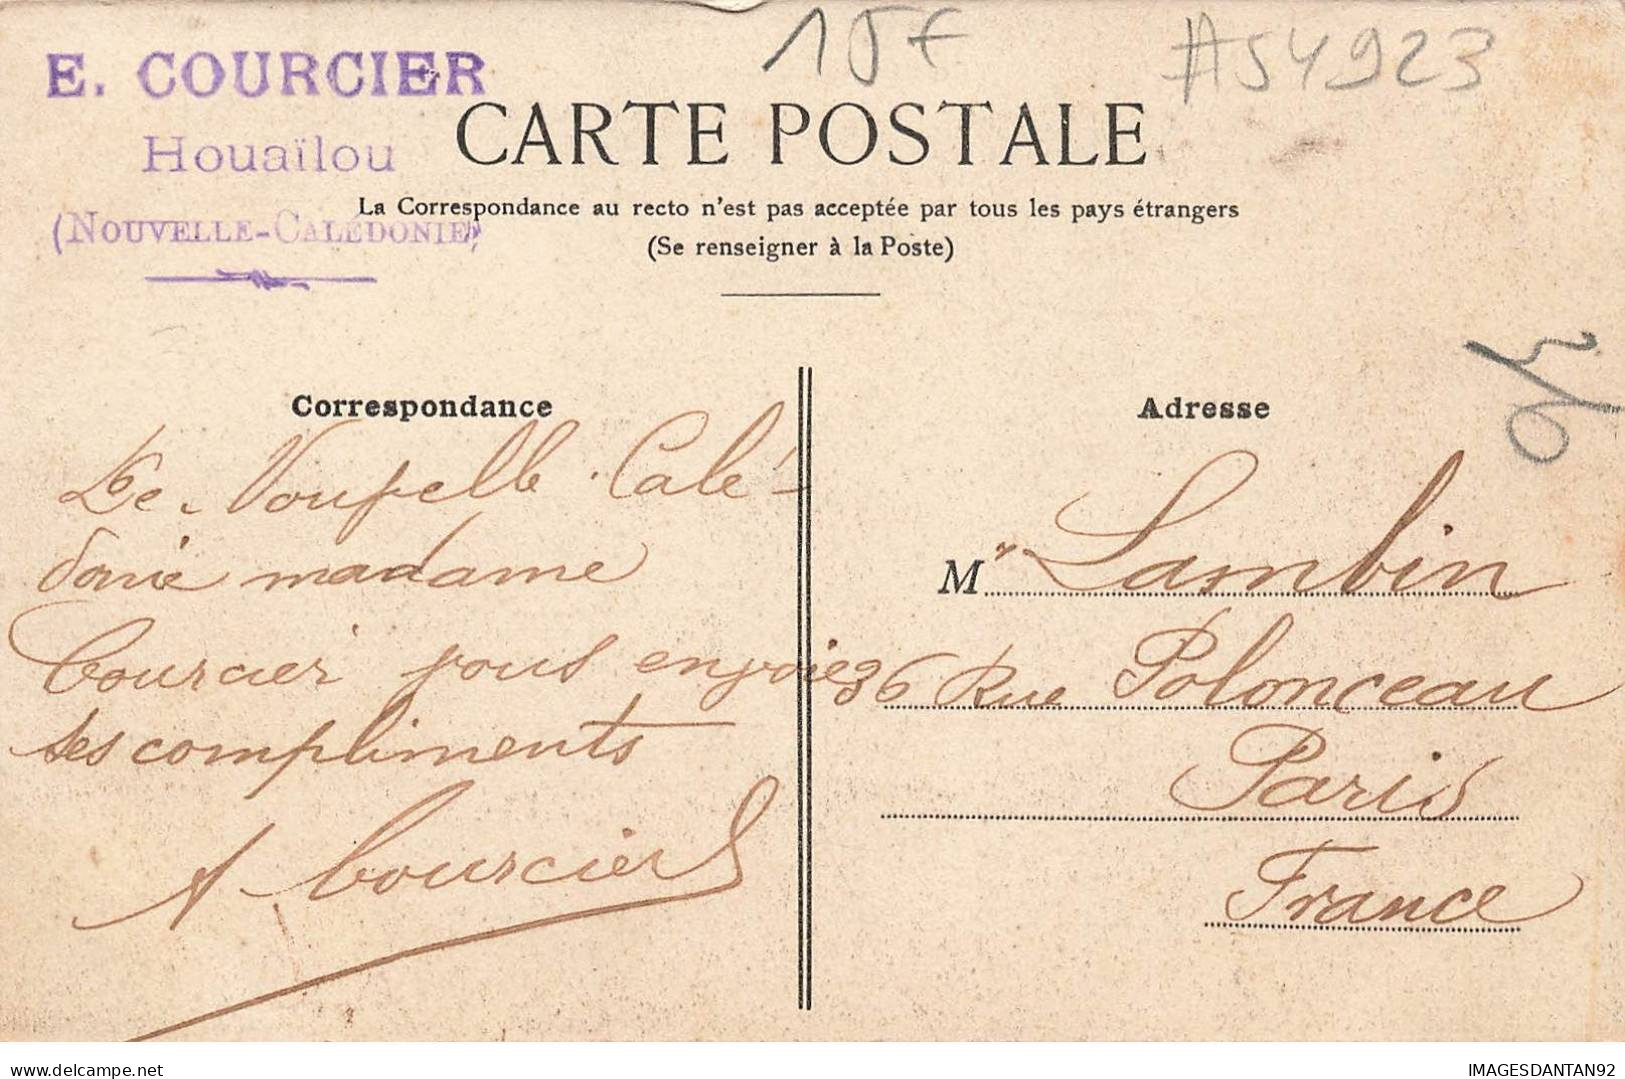 15F
A54923
E. COURCIER
Houaïlou
(NOUVELLE-CALÉDONIE)
CARTE POSTALE
La Correspondance au recto n'est pas acceptée par tous les pays étrangers
(Se renseigner à la Poste)
Correspondance
De Nouvelle Calé-
donie madame
Courcier vous envoie
ses compliments
A Courcier
Adresse
Mr Lambin
36 Rue Polonceau
Paris
France
IMAGESDANTAN92